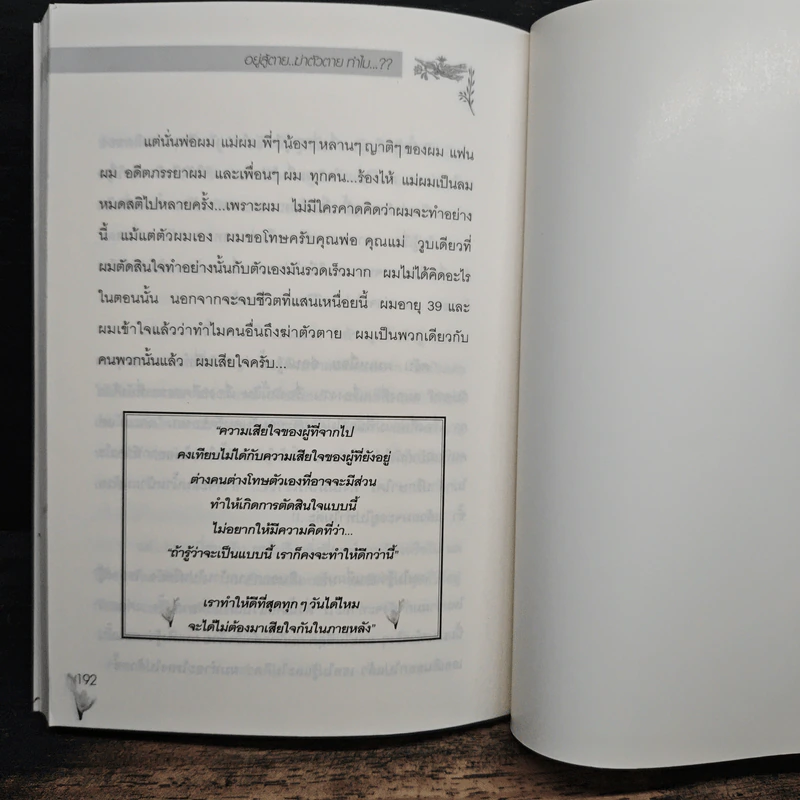 อยู่สู้ตาย..ฆ่าตัวตาย ทำไม...??
แต่นั่นพ่อผม แม่ผม พี่ๆ น้องๆ หลานๆ ญาติๆ ของผม แฟน
ผม อดีตภรรยาผม และเพื่อนๆ ผม ทุกคน...ร้องไห้ แม่ผมเป็นลม
หมดสติไปหลายครั้ง...เพราะผม ไม่มีใครคาดคิดว่าผมจะทำอย่าง
นี้ แม้แต่ตัวผมเอง ผมขอโทษครับคุณพ่อ คุณแม่ วูบเดียวที่
ผมตัดสินใจทำอย่างนั้นกับตัวเองมันรวดเร็วมาก ผมไม่ได้คิดอะไร
ในตอนนั้น นอกจากจะจบชีวิตที่แสนเหนื่อยนี้ ผมอายุ 39 และ
ผมเข้าใจแล้วว่าทำไมคนอื่นถึงฆ่าตัวตาย ผมเป็นพวกเดียวกับ
คนพวกนั้นแล้ว ผมเสียใจครับ...
"ความเสียใจของผู้ที่จากไป
คงเทียบไม่ได้กับความเสียใจของผู้ที่ยังอยู่
ต่างคนต่างโทษตัวเองที่อาจจะมีส่วน
ทำให้เกิดการตัดสินใจแบบนี้
ไม่อยากให้มีความคิดที่ว่า...
"ถ้ารู้ว่าจะเป็นแบบนี้ เราก็คงจะทำให้ดีกว่านี้"
เราทำให้ดีที่สุดทุก ๆ วันได้ไหม
จะได้ไม่ต้องมาเสียใจกันในภายหลัง"
192